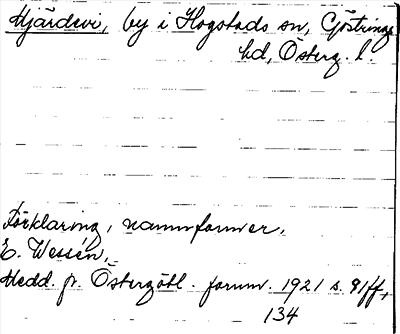 Hjärdevi, by i Hogstads sn, Göstrings
hd, Österg. l.
Förklaring, namnformer.
E. Wessén,
Medd. fr. Östergötl. fornm. 1921 s. 91ff,
134